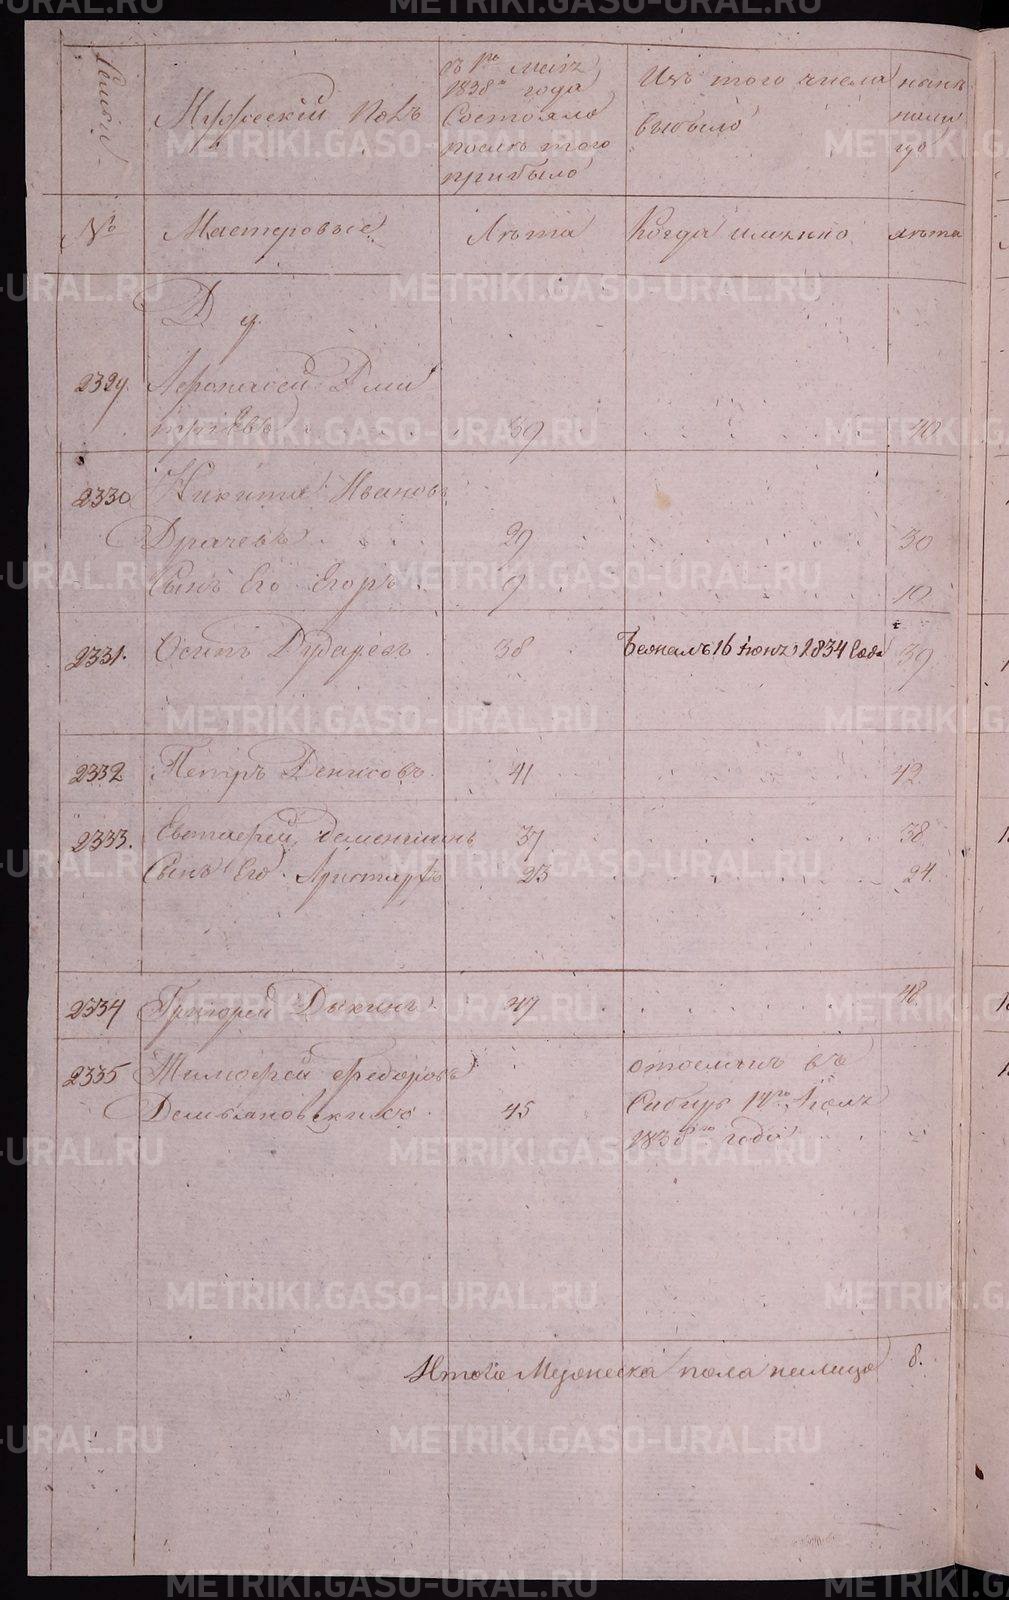 Семьи
Мужескій Полъ
съ 1го Маія
1838го года
Состояло
после того
прибыло
Изъ того числа
выбыло
ныне
на лицо
№
Мастеровые
Лѣта
Когда именно
лѣта
Д
2329. Афонасей Дми
тріевъ 39 40
2330 Никита Ивановъ
Драчевъ 29 30
Сынъ Его Егоръ 9 10
2331. Осипъ Дударевъ 38 Бежалъ 16 Іюня 1834 года 39
2332 Петръ Денисовъ 41 42
2333. Евстафей Дементьинъ 37 38
Сынъ Его Аристархъ 23 24
2334 Григорей Дыкинъ 47 48
2335 Тимофей Федоровъ отосланъ въ
Демьяновскихъ 45 Сибирь 14го Іюля
1838го года
Итого Мужеска пола налицо 8.
METRIKI.GASO-URAL.RU